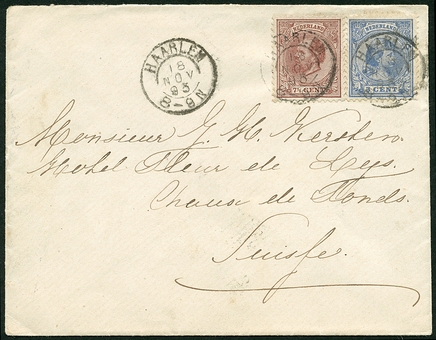 HAARLEM
18
NOV
93
8-9N
NEDERLAND
7½ CENT
HAARLEM
NEDERLAND
5 CENT
HAARLEM
Monsieur J. H. Kersten.
Hotel Fleur de Lys.
Chaux de Fonds.
Suisse.